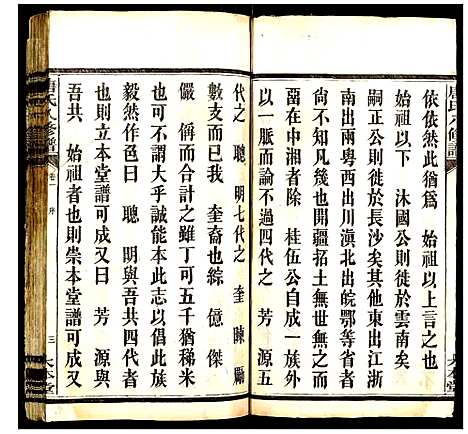 依依然此猶爲　始祖以上言之也
始祖以下　沐國公則徙於雲南矣
嗣正公則徙於長沙矣其他東出江浙
南出兩粵西出川滇北出皖鄂等省則
尚尚不可無也開疆拓土無世無之
啚在中湘者除　桂伍公一大系外
以一脈而論不過四代之　芳　源五
代之　聰　明七代之　奎　陳　勵
數支而已我　奎裔也綜　億　傑
儼　俏而合計之雖丁可五千猶稊米
也然而不謂大乎誠能本此志以倡此族
毅然作色曰　聰　明與吾共四代者
也則立本堂譜可成又曰　芳　源與
吾共　始祖者也則崇本堂譜可成又
唐氏八修譜
卷一　序
三　大本堂